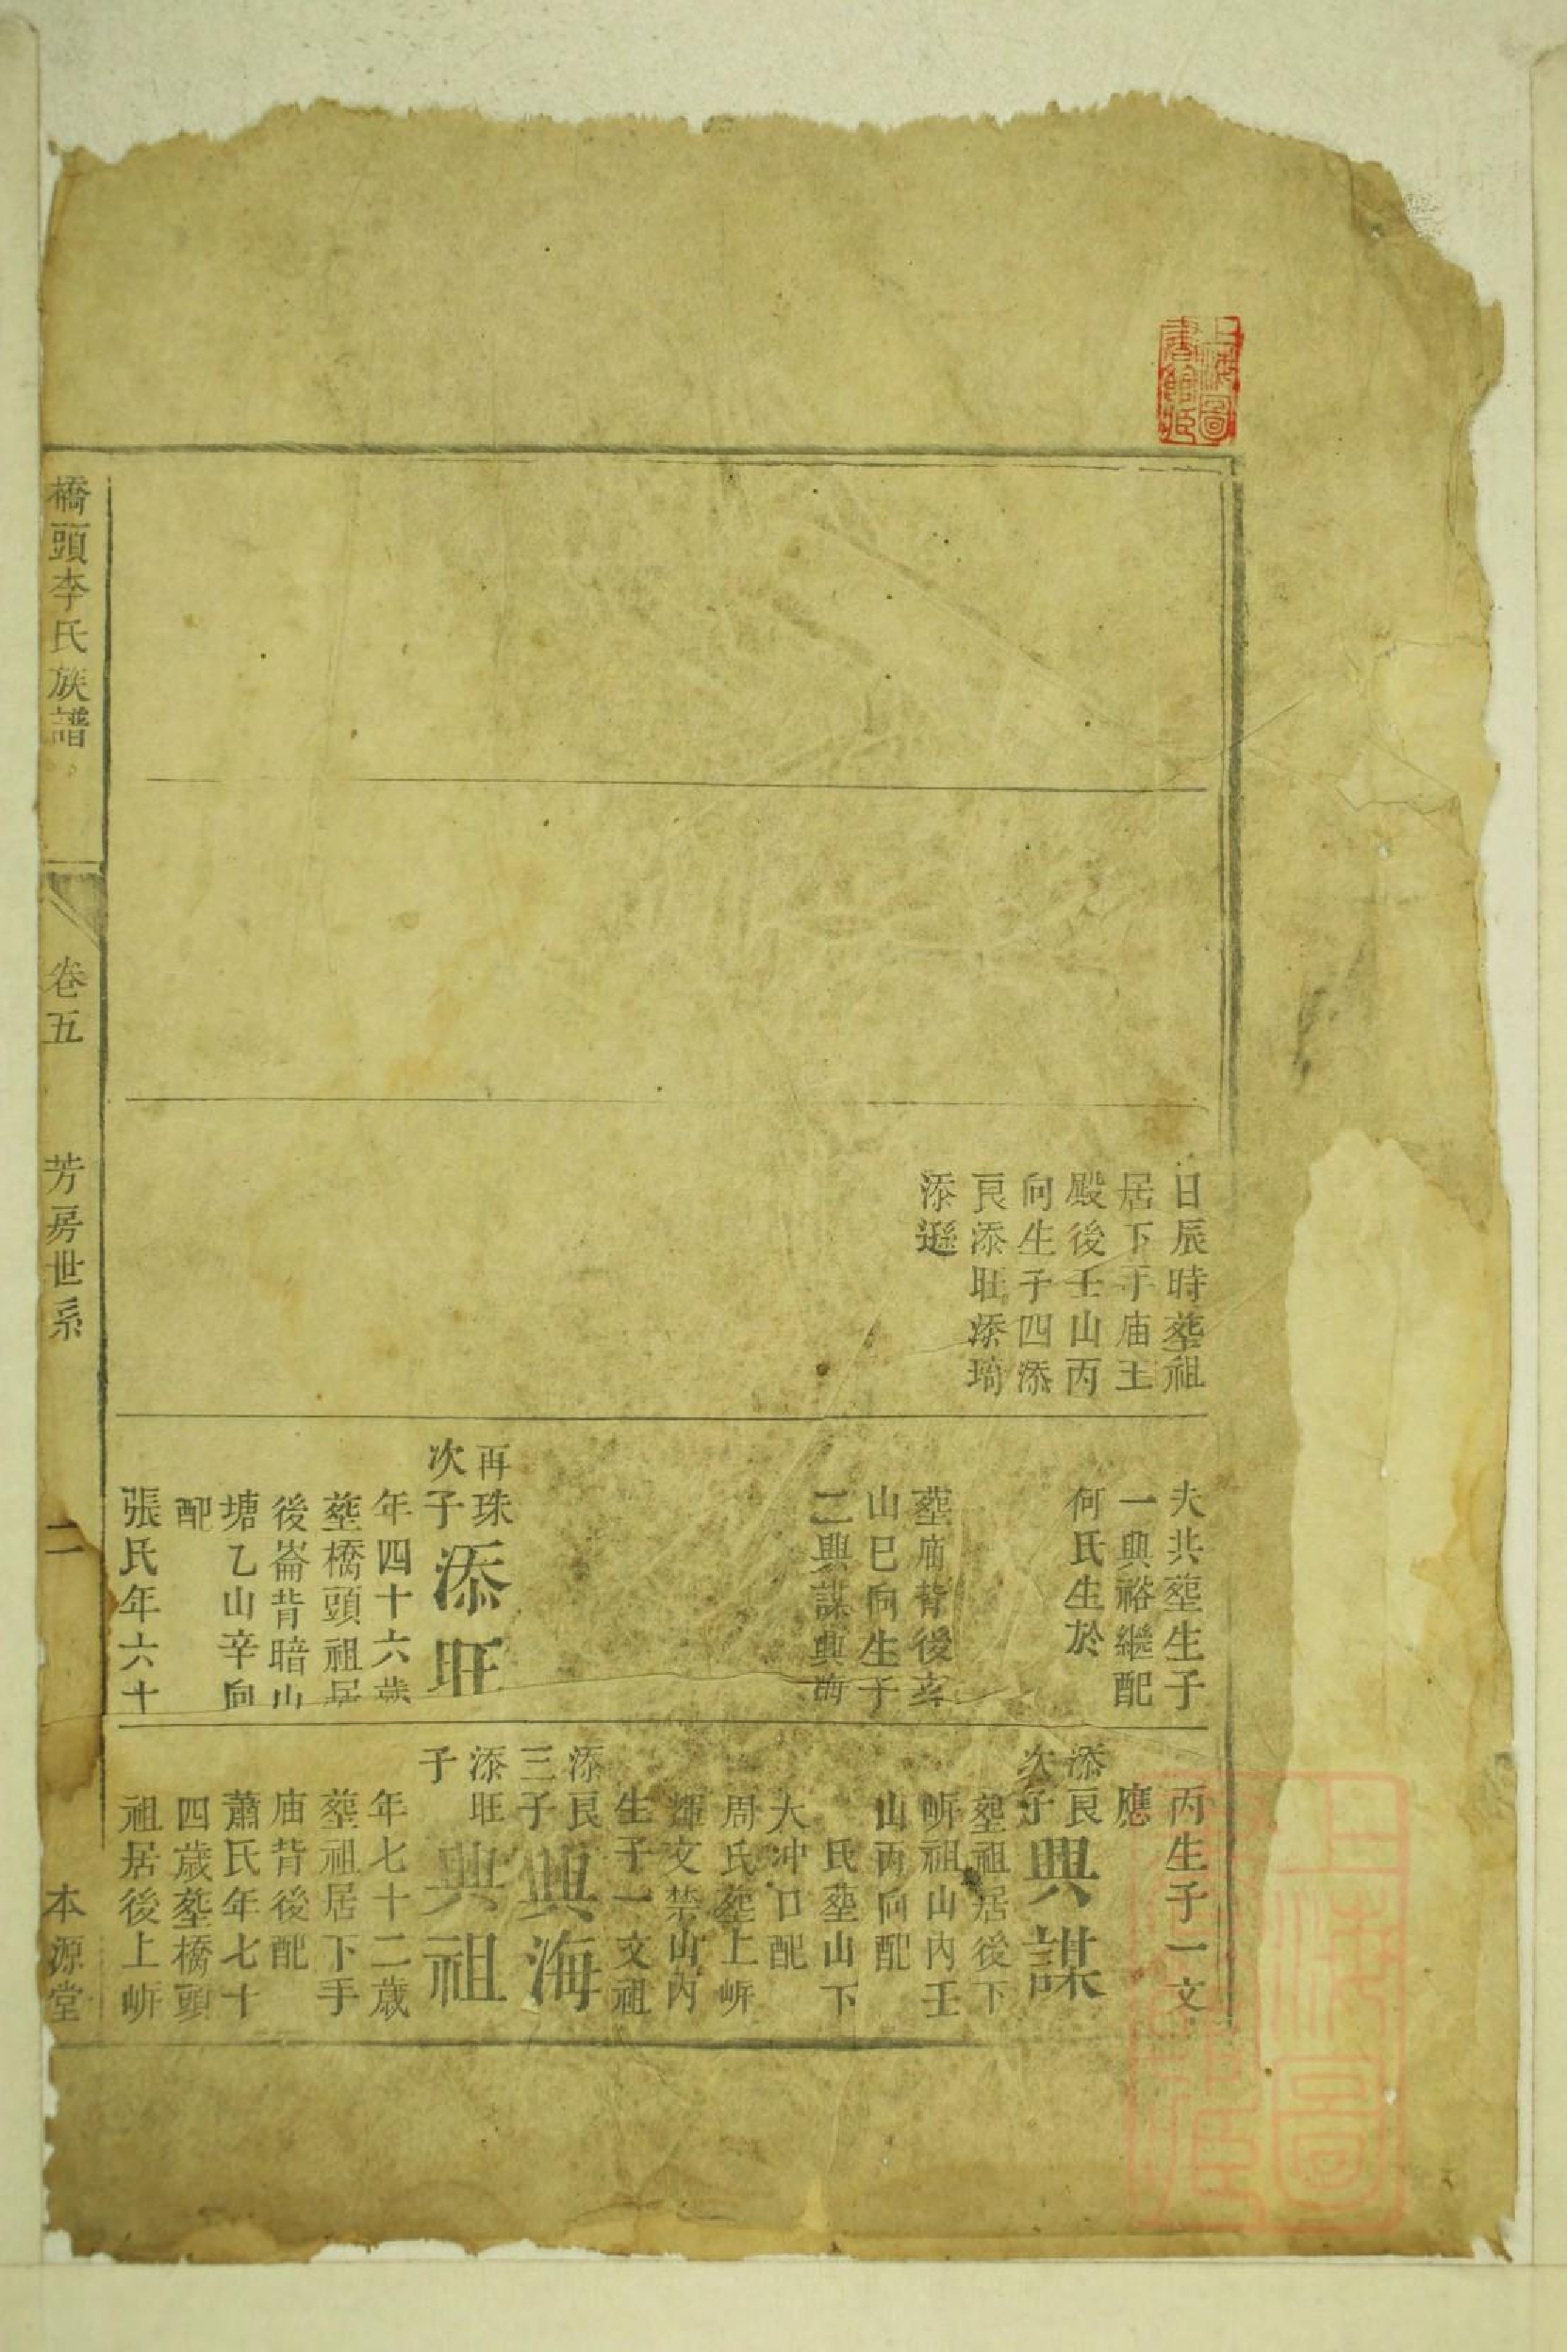 上海圖
書館藏
日辰時塟祖
居下手庙王
殿後壬山丙
向生子四添
良添旺添琦
添遜
夫共塟生子
一興裕繼配
何氏生於
塟庙背後亥
山巳向生子
二興謀興海
再珠
次子添旺
年四十六歲
塟橋頭祖居
後崙背暗山
塘乙山辛向
配
張氏年六十
丙生子一文
應
添良
次子興謀
塟祖居後下
㟁祖山內壬
山丙向配
氏塟山下
大冲口配
周氏塟上㟁
輝文禁山內
生子一文祖
添良
三子興海
添旺
子興祖
年七十二歲
塟祖居下手
庙背後配
蕭氏年七十
四歲塟橋頭
祖居後上㟁
橋頭李氏族譜
卷五
芳房世系
二
本源堂
上海圖
書館藏